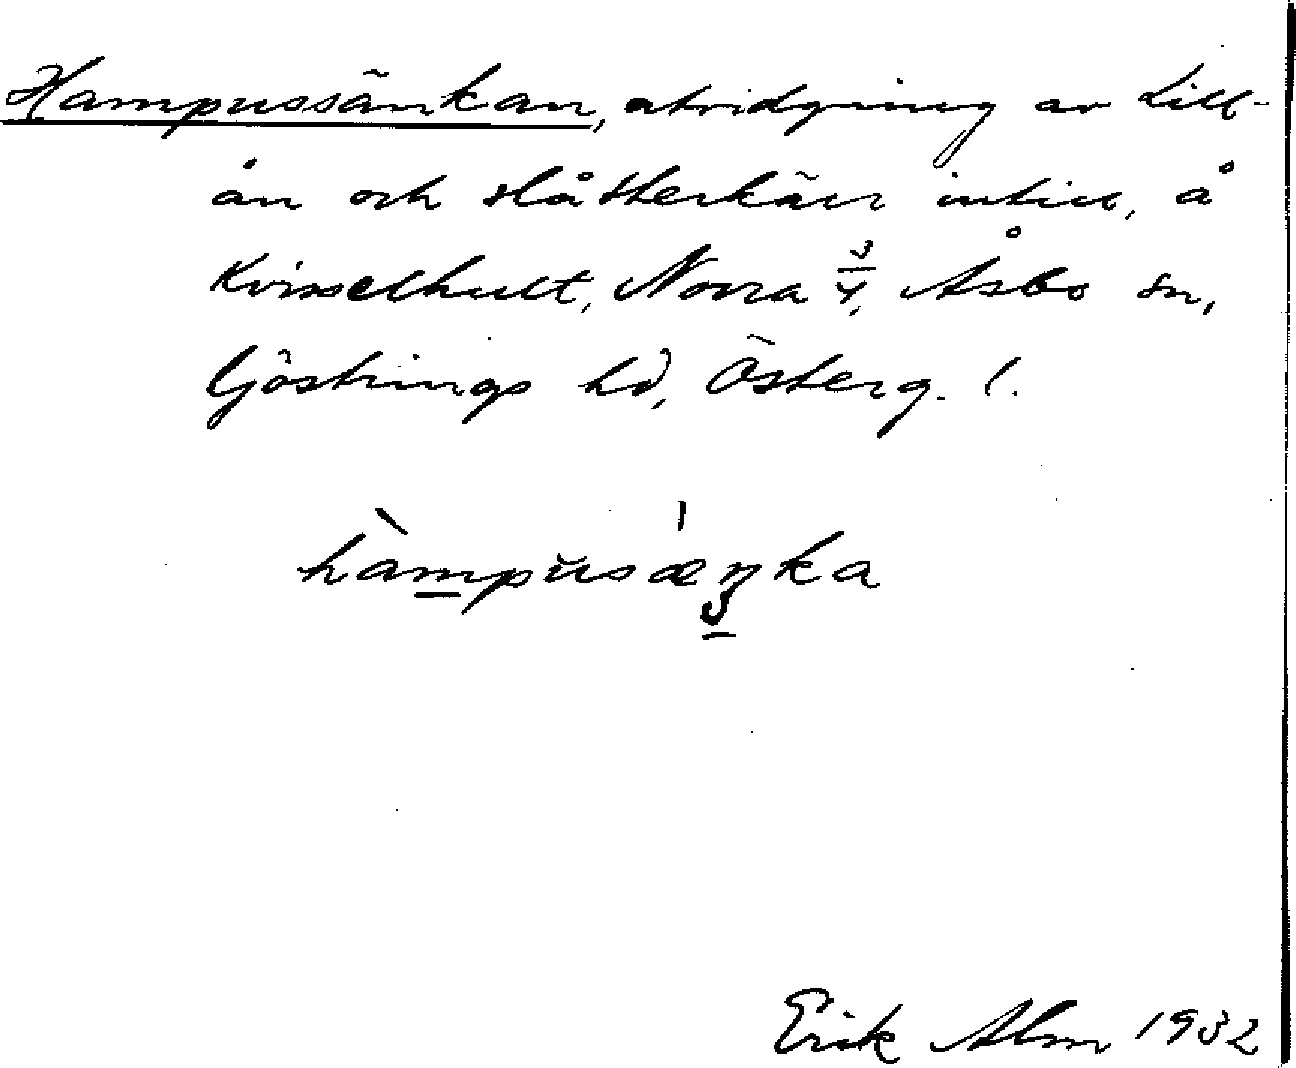 Hampussänkan, utvidgning av Lill-
ån och slåtterkärr intill, å
Kvisselhult, Norra 3/4, Åsbo sn,
Göstrings hd, Österg. l.
hàmpusæŋka
Erik Alm 1932